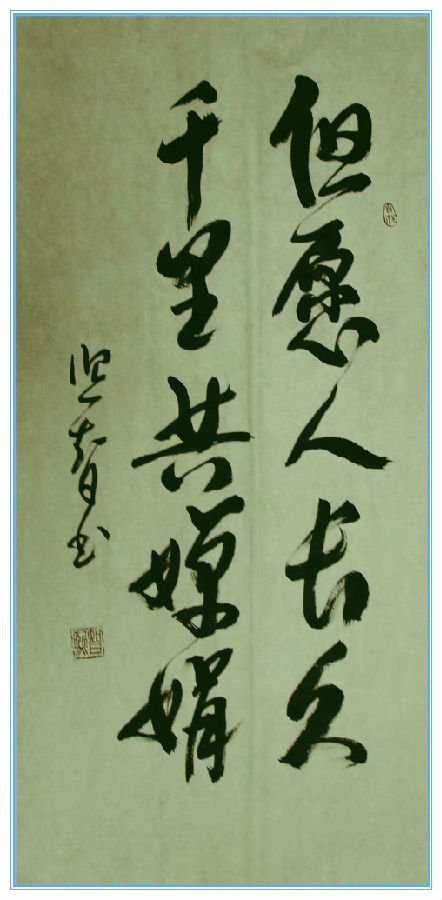 但愿人长久
千里共婵娟
智书